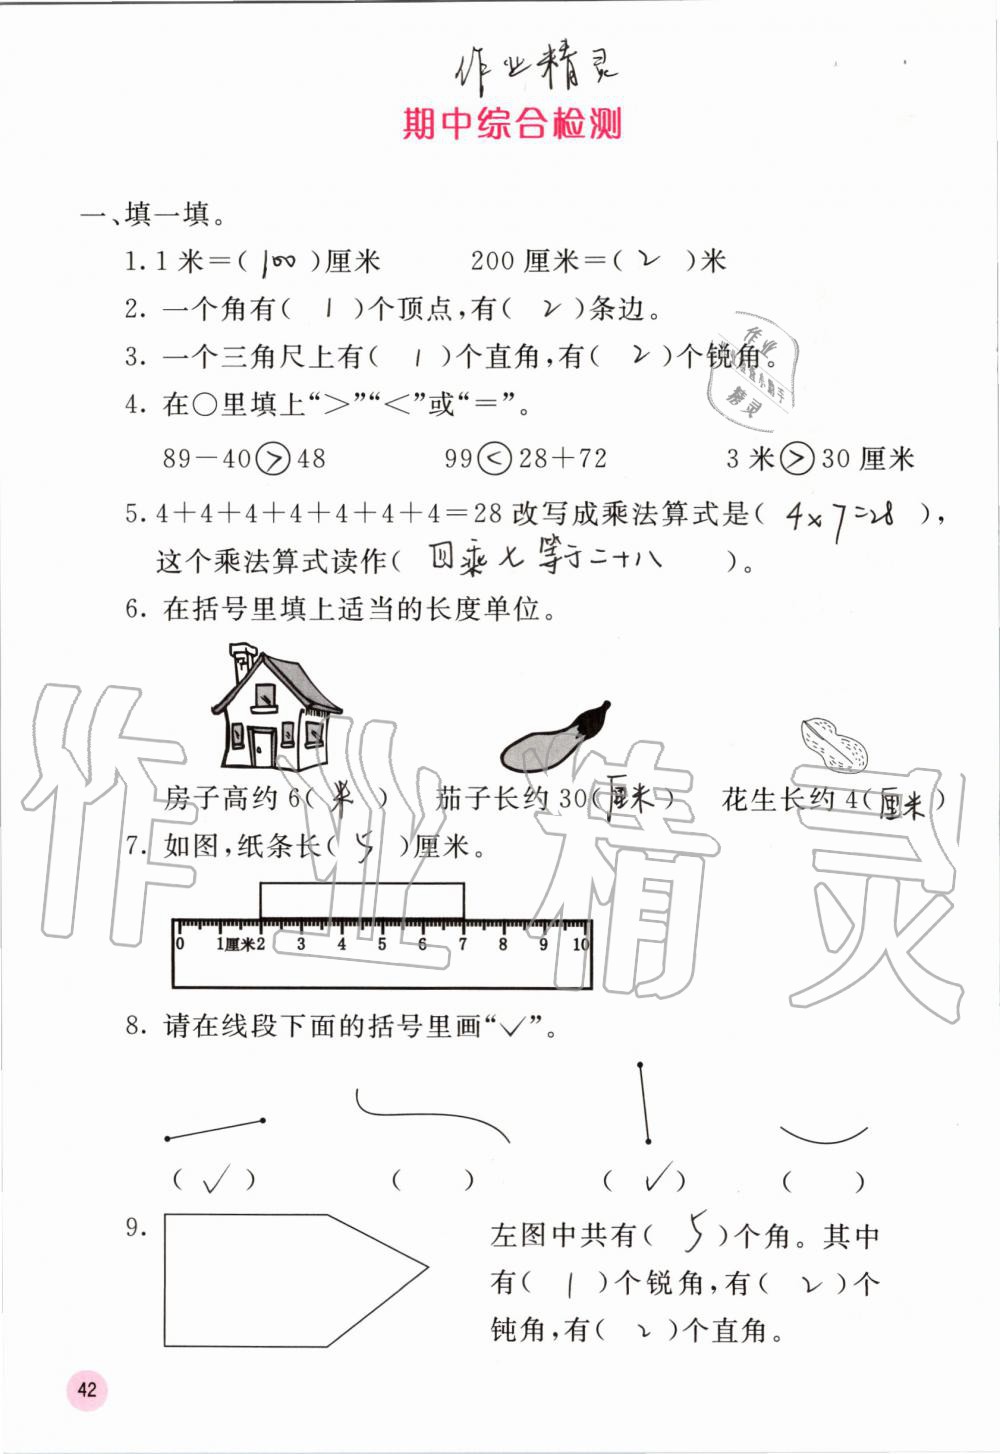 作业精灵
期中综合检测
一、填一填。
1. 1米=( 100 )厘米 200厘米=( 2 )米
2. 一个角有( 1 )个顶点,有( 2 )条边。
3. 一个三角尺上有( 1 )个直角,有( 2 )个锐角。
4. 在○里填上“>”“<”或“=”。
89-40>48 99<28+72 3米>30厘米
5. 4+4+4+4+4+4+4=28改写成乘法算式是( 4×7=28 ),
这个乘法算式读作( 四乘七等于二十八 )。
6. 在括号里填上适当的长度单位。
房子高约6( 米 ) 茄子长约30( 厘米 ) 花生长约4( 厘米 )
7. 如图,纸条长( 5 )厘米。
0 1厘米2 3 4 5 6 7 8 9 10
8. 请在线段下面的括号里画“✓”。
( ✓ ) ( ) ( ✓ ) ( )
9. 左图中共有( 5 )个角。其中
有( 1 )个锐角,有( 2 )个
钝角,有( 2 )个直角。
42
作业精灵
作业
精灵